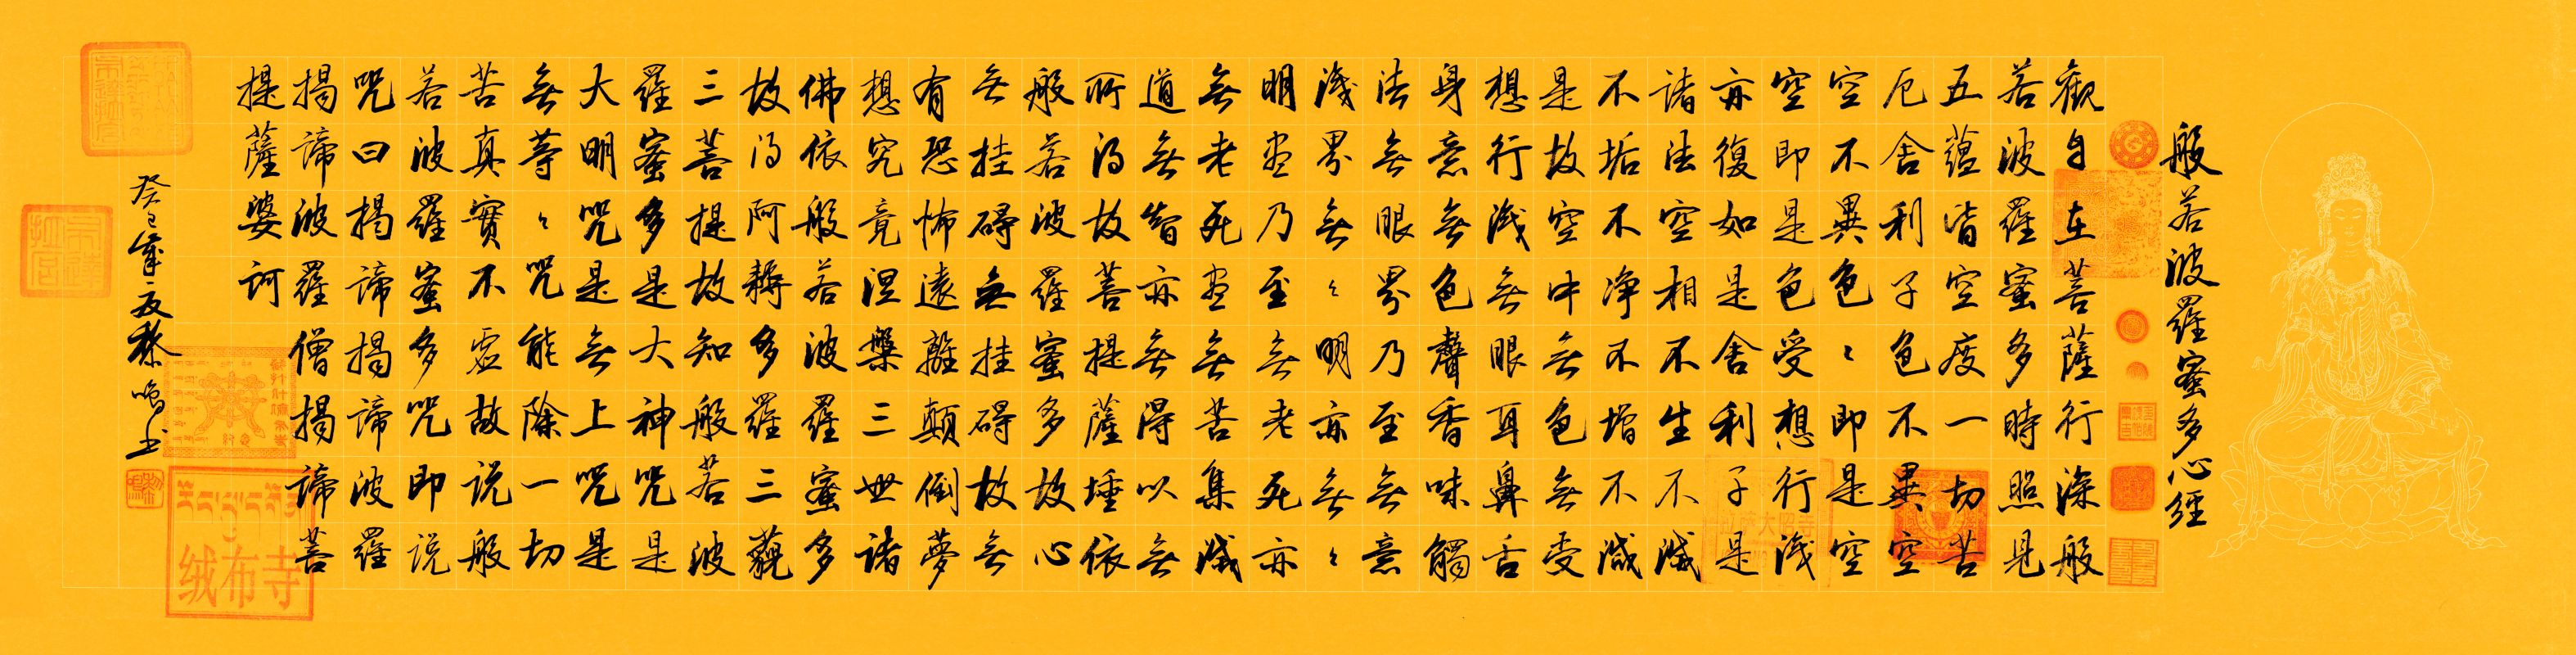 般若波羅蜜多心經
觀自在菩薩行深般
若波羅蜜多時照見
五蘊皆空度一切苦
厄舍利子色不異空
空不異色〻即是空
空即是色受想行識
亦復如是舍利子是
諸法空相不生不滅
不垢不淨不增不減
是故空中無色無受
想行識無眼耳鼻舌
身意無色聲香味觸
法無眼界乃至無意
識界無〻明亦無〻
明盡乃至無老死亦
無老死盡無苦集滅
道無智亦無得以無
所得故菩提薩埵依
般若波羅蜜多故心
無挂碍無挂碍故無
有恐怖遠離顛倒夢
想究竟涅槃三世諸
佛依般若波羅蜜多
故得阿耨多羅三藐
三菩提故知般若波
羅蜜多是大神咒是
大明咒是無上咒是
無等〻咒能除一切
苦真實不虛故說般
若波羅蜜多咒即說
咒曰揭諦揭諦波羅
揭諦波羅僧揭諦菩
提薩婆訶
癸巳夏黎鳴书
绒布寺